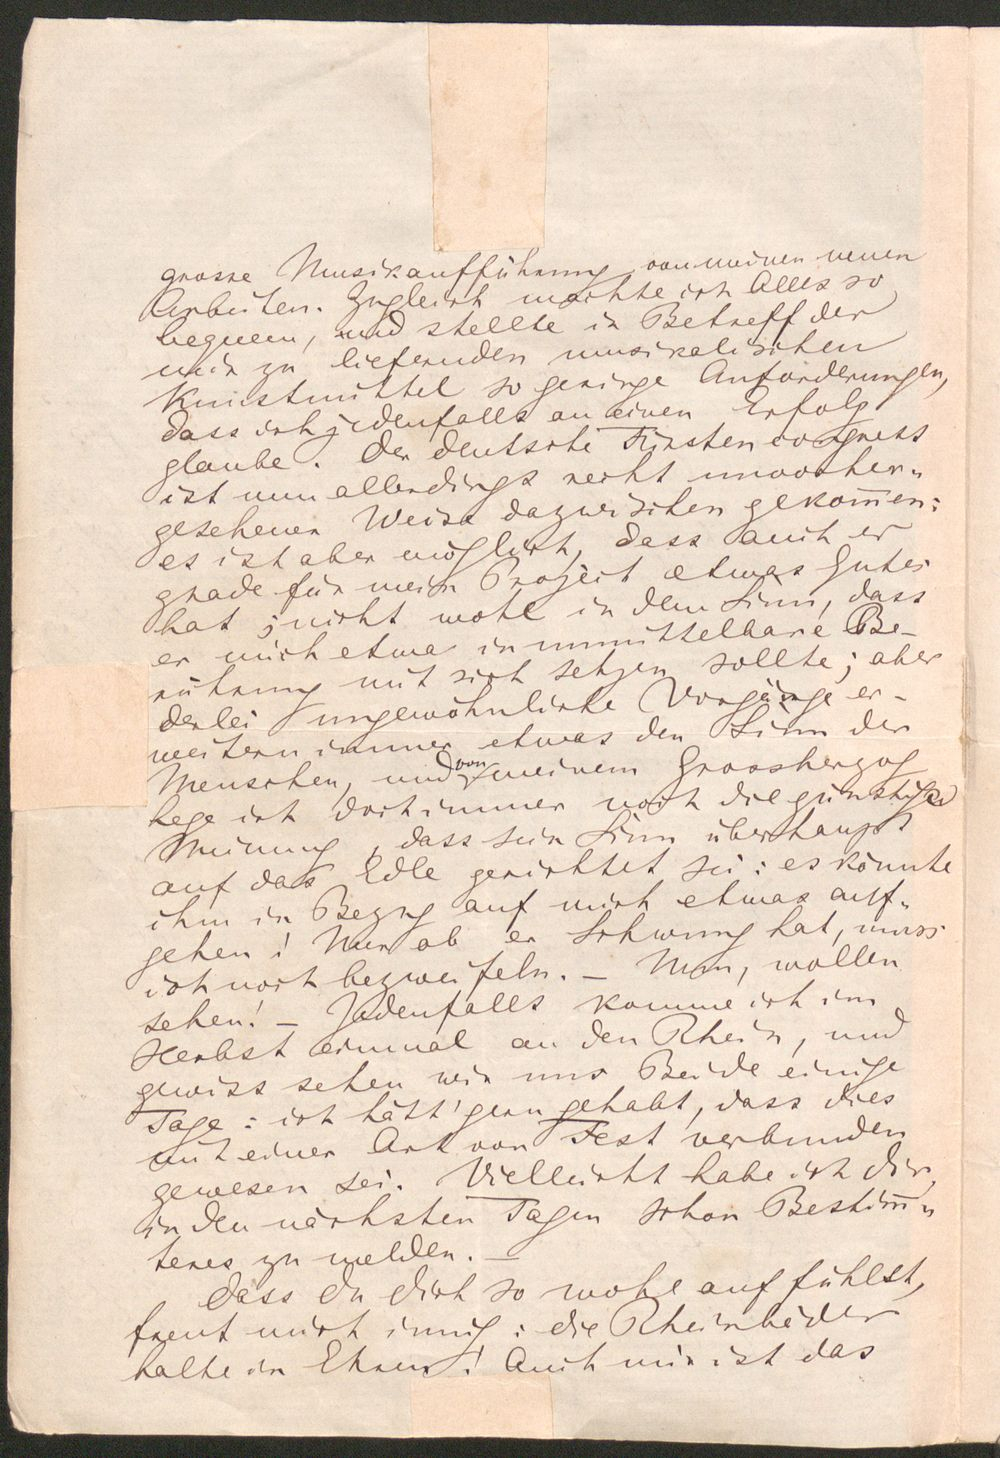 grosse Musikaufführung von meinen neuen
Arbeiten. Zugleich machte ich Alles so
bequem, und stellte in Betreff der
mir zu liefernden musikalischen
Kunstmittel so geringe Anforderungen,
dass ich jedenfalls an einen Erfolg
glaube. Der deutsche Fürstencongress
ist nun allerdings recht unvorher-
gesehener Weise dazwischen gekom̅en:
es ist aber möglich, dass auch er
grade für mein Project etwas Gutes
hat; nicht wohl in dem Sinn, dass
er mich etwa in unmittelbare Be-
rührung mit sich setzen sollte; aber
derlei ungewöhnliche Vorgänge er-
weitern immer etwas den Sinn der
Menschen, und von meinem Grossherzog
hege ich doch immer noch die günstige
Meinung, dass sein Sinn überhaupt
auf das Edle gerichtet sei: es könnte
ihm in Bezug auf mich etwas auf-
gehen! Nur ob er Schwung hat, muss
ich noch bezweifeln. – Nun, wollen
sehen! – Jedenfalls komme ich im
Herbst einmal an den Rhein, und
gewiss sehen wir uns Beide einige
Tage: ich hätt' gern gehabt, dass dies
mit einer Art von Fest verbunden
gewesen sei. Vielleicht habe ich dir
in den nächsten Tagen schon Bestim̅-
teres zu melden. –
Dass du dich so wohl auf fühlst,
freut mich innig: die Rheinbäder
halte in Ehren! Auch mir ist das